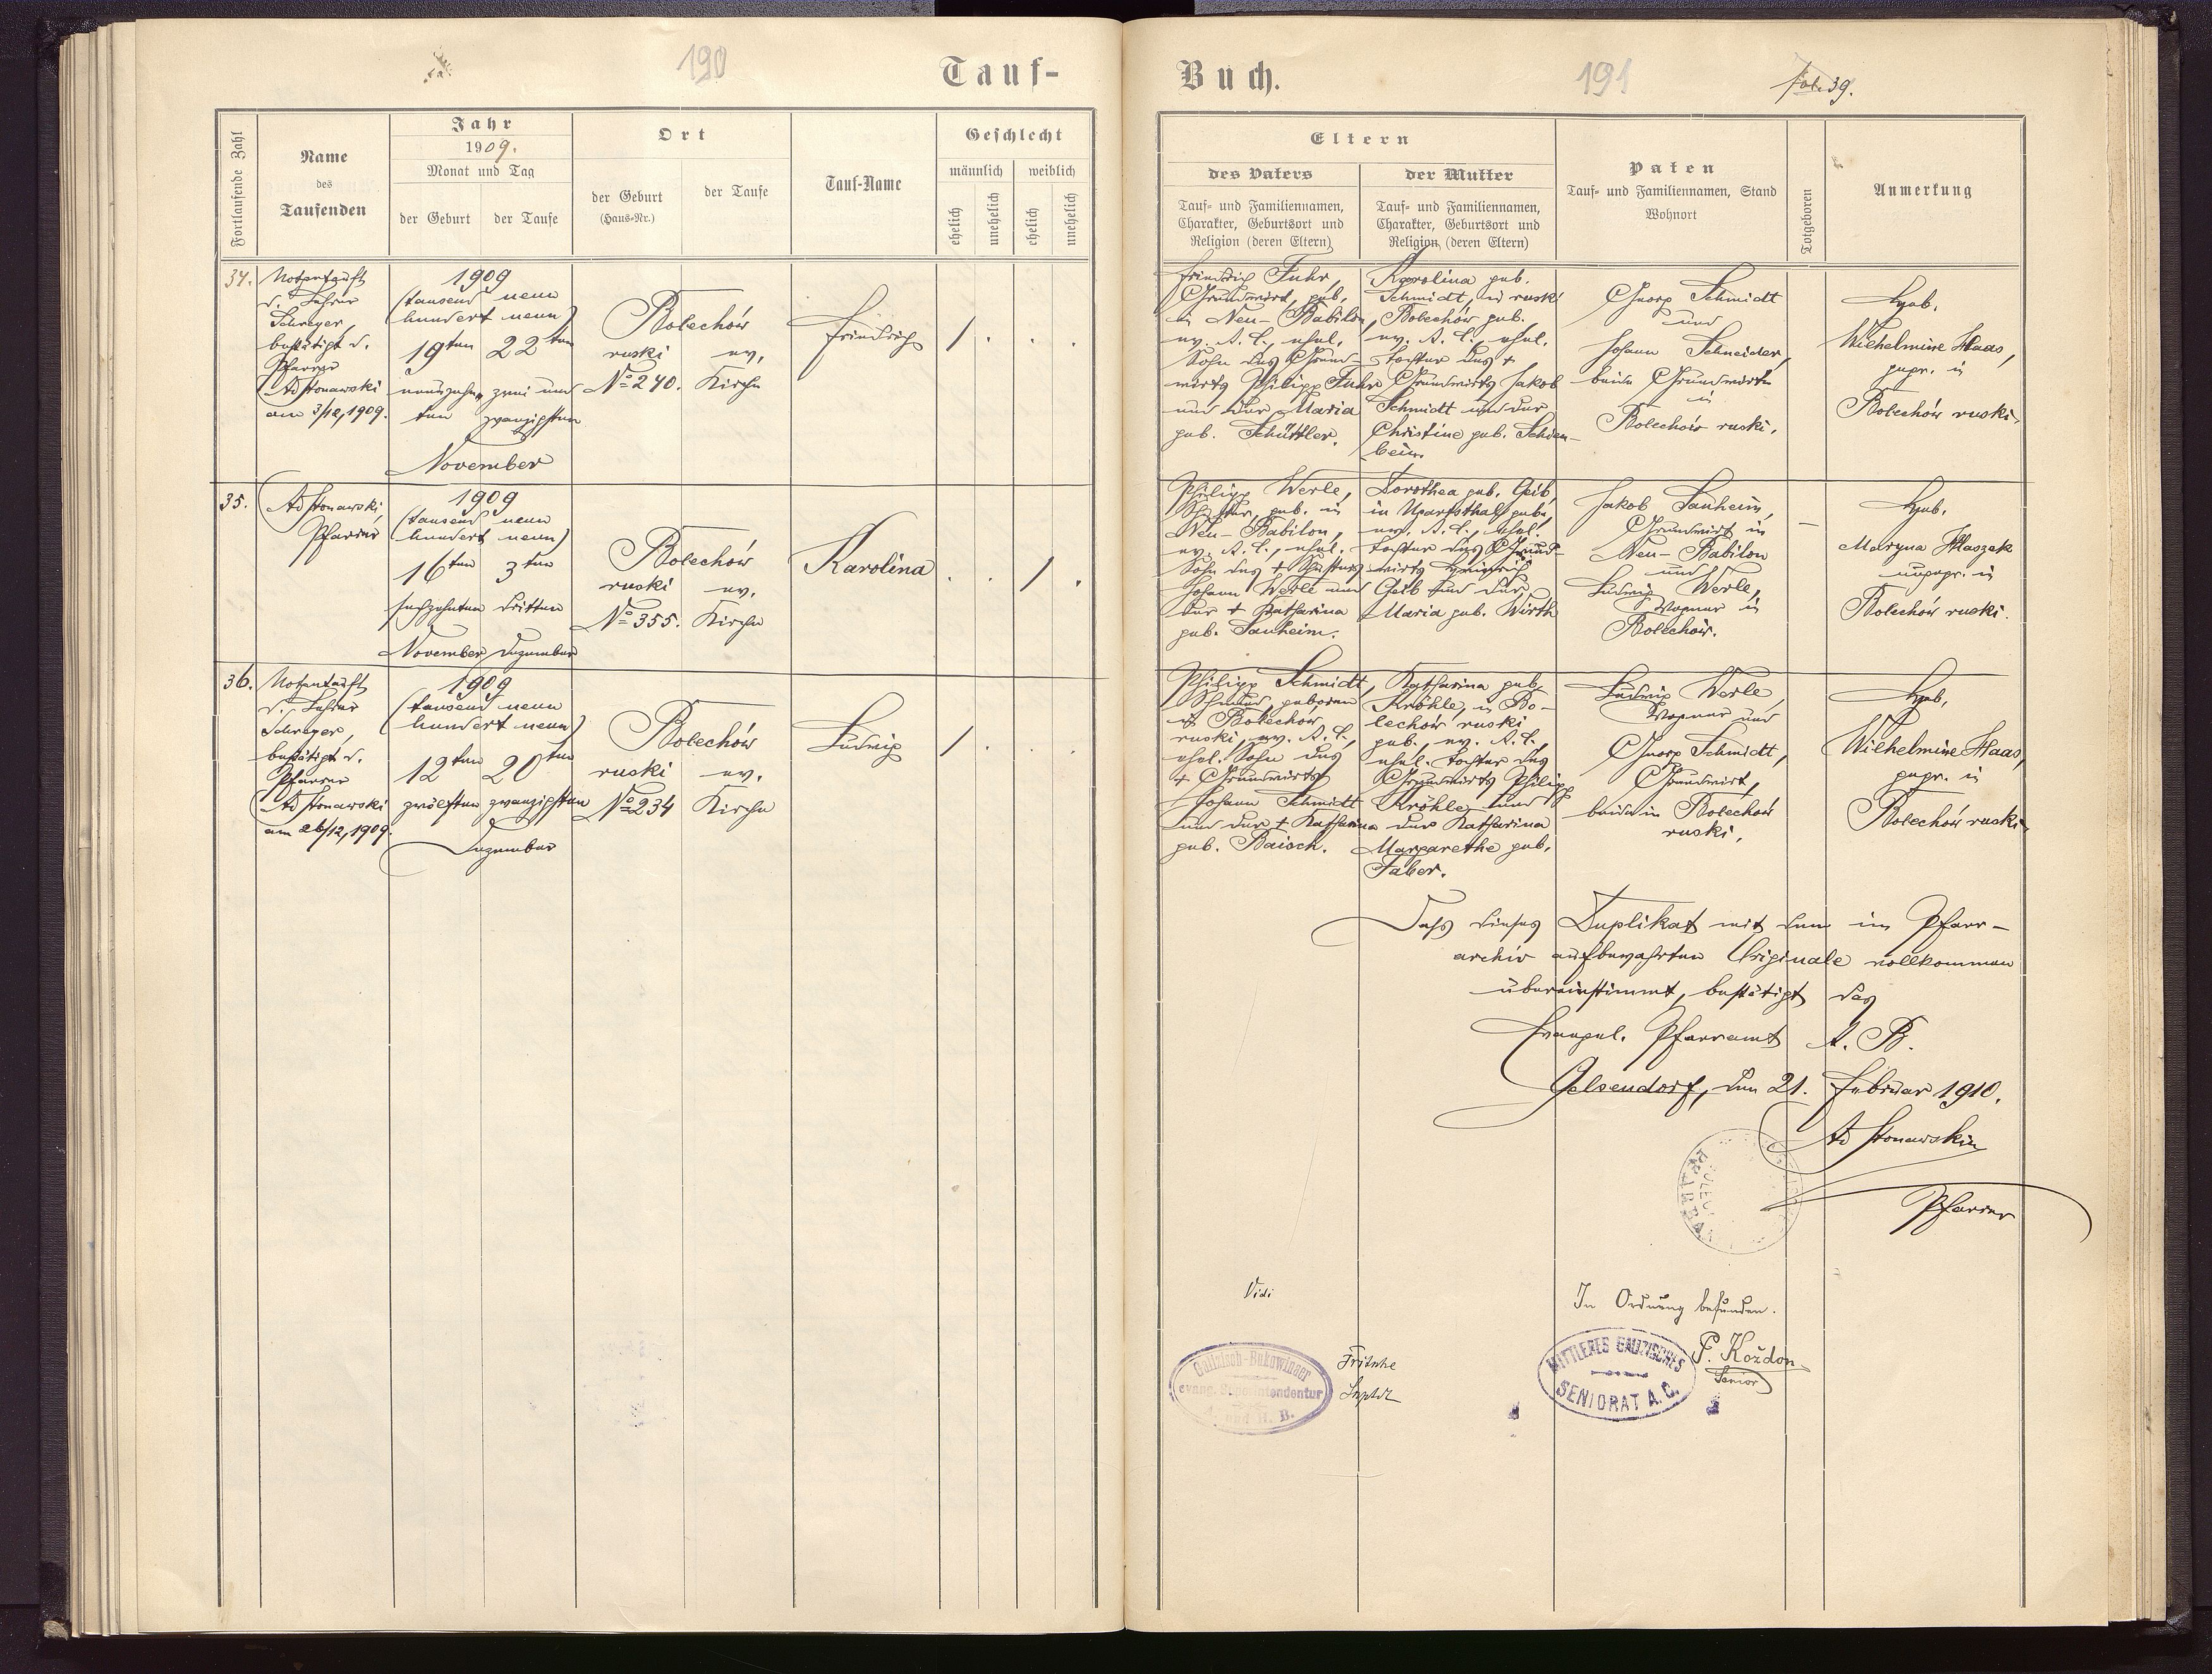 190
Tauf-
Fortlaufende Zahl
Name
des
Taufenden
Jahr
1909.
Monat und Tag
der Geburt
der Taufe
Ort
der Geburt
(Haus-Nr.)
der Taufe
Tauf-Name
Geschlecht
männlich
weiblich
ehelich
unehelich
ehelich
unehelich
34.
Notgetauft
d. Lehrer
Schreyer,
bestätigt d.
Pfarrer
Ad Stonawski
am 3/12, 1909.
1909
(tausend neun
hundert neun)
19ten 22ten
neunzehn- zwei und
ten zwanzigsten
November
Bolechów
ruski
No 240.
ev.
Kirche
Friedrich
1 . . .
35.
Ad Stonawski,
Pfarrer
1909
(tausend neun
hundert neun)
16ten 3ten
sechzehnten dritten
November Dezember
Bolechów
ruski
No 355.
ev.
Kirche
Karolina
. . 1 .
36.
Notgetauft
d. Lehrer
Schreyer,
bestätigt d.
Pfarrer
Ad Stonawski
am 26/12, 1909.
1909
(tausend neun
hundert neun)
12ten 20ten
zwölften zwanzigsten
Dezember
Bolechów
ruski
No 234
ev.
Kirche
Ludwig
1 . . .
Buch.
191
fol. 39.
Eltern
des Vaters
Tauf- und Familiennamen,
Charakter, Geburtsort und
Religion (deren Eltern)
der Mutter
Tauf- und Familiennamen,
Charakter, Geburtsort und
Religion (deren Eltern)
Paten
Tauf- und Familiennamen, Stand
Wohnort
Totgeboren
Anmerkung
Friedrich Fuhr,
Grundwirt, geb.
in Neu-Babilon,
ev. A. C., ehel.
Sohn des Grund-
wirts Philipp Fuhr
und der Maria
geb. Schüttler.
Karolina geb.
Schmidt, in ruski
Bolechów geb.
ev. A. C., ehel.
Tochter des +
Grundwirts Jakob
Schmidt und der
Christine geb. Schien-
bein.
Georg Schmidt
und
Johann Schneider,
beide Grundwirte
in
Bolechów ruski.
Heb.
Wilhelmine Haas,
gepr. in
Bolechów ruski.
Philipp Werle,
geb. in
Neu-Babilon,
ev. A. C., ehel.
Sohn des + Schusters
Johann Werle und
der + Katharina
geb. Tauheim.
Dorothea geb. Geib,
in Ugartsthal geb.
ev. A. C., ehel.
Tochter des Grund-
wirts Heinrich
Geib und der
Maria geb. Wirth
Jakob Tauheim,
Grundwirt in
Neu-Babilon
und
Ludwig Werle,
Wagner in
Bolechów.
–
Heb.
Maryna Haszek
ungepr. in
Bolechów ruski.
Philipp Schmidt,
Schmied, geboren
in Bolechow
ruski, ev. A. C.,
ehel. Sohn des
+ Grundwirts
Johann Schmidt
und der + Katharina
geb. Baisch.
Katharina geb.
Kröhle, in Bo-
lechów ruski
geb., ev. A. C.,
ehel. Tochter des
Grundwirts Philipp
Kröhle und
der Katharina
Margarethe geb.
Faber.
Ludwig Werle,
Wagner und
Georg Schmidt,
Grundwirt,
beide in Bolechów
ruski.
Heb.
Wilhelmine Haas,
gepr. in
Bolechów ruski.
Dass dieses Duplikat mit dem im Pfarr-
archiv aufbewahrten Originale vollkommen
übereinstimmt, bestätigt das
Evangel. Pfarramt A. B.
Gelsendorf, den 21. Februar 1910.
Ad Stonawski
Pfarrer
Vidi
Galizisch-Bukowinaer
evang. Superintendentur
A. und H. B.
Fritsche
Suptdt
In Ordnung befunden.
MITTLERES GALIZISCHES
SENIORAT A. C.
P. Kożdon
Senior